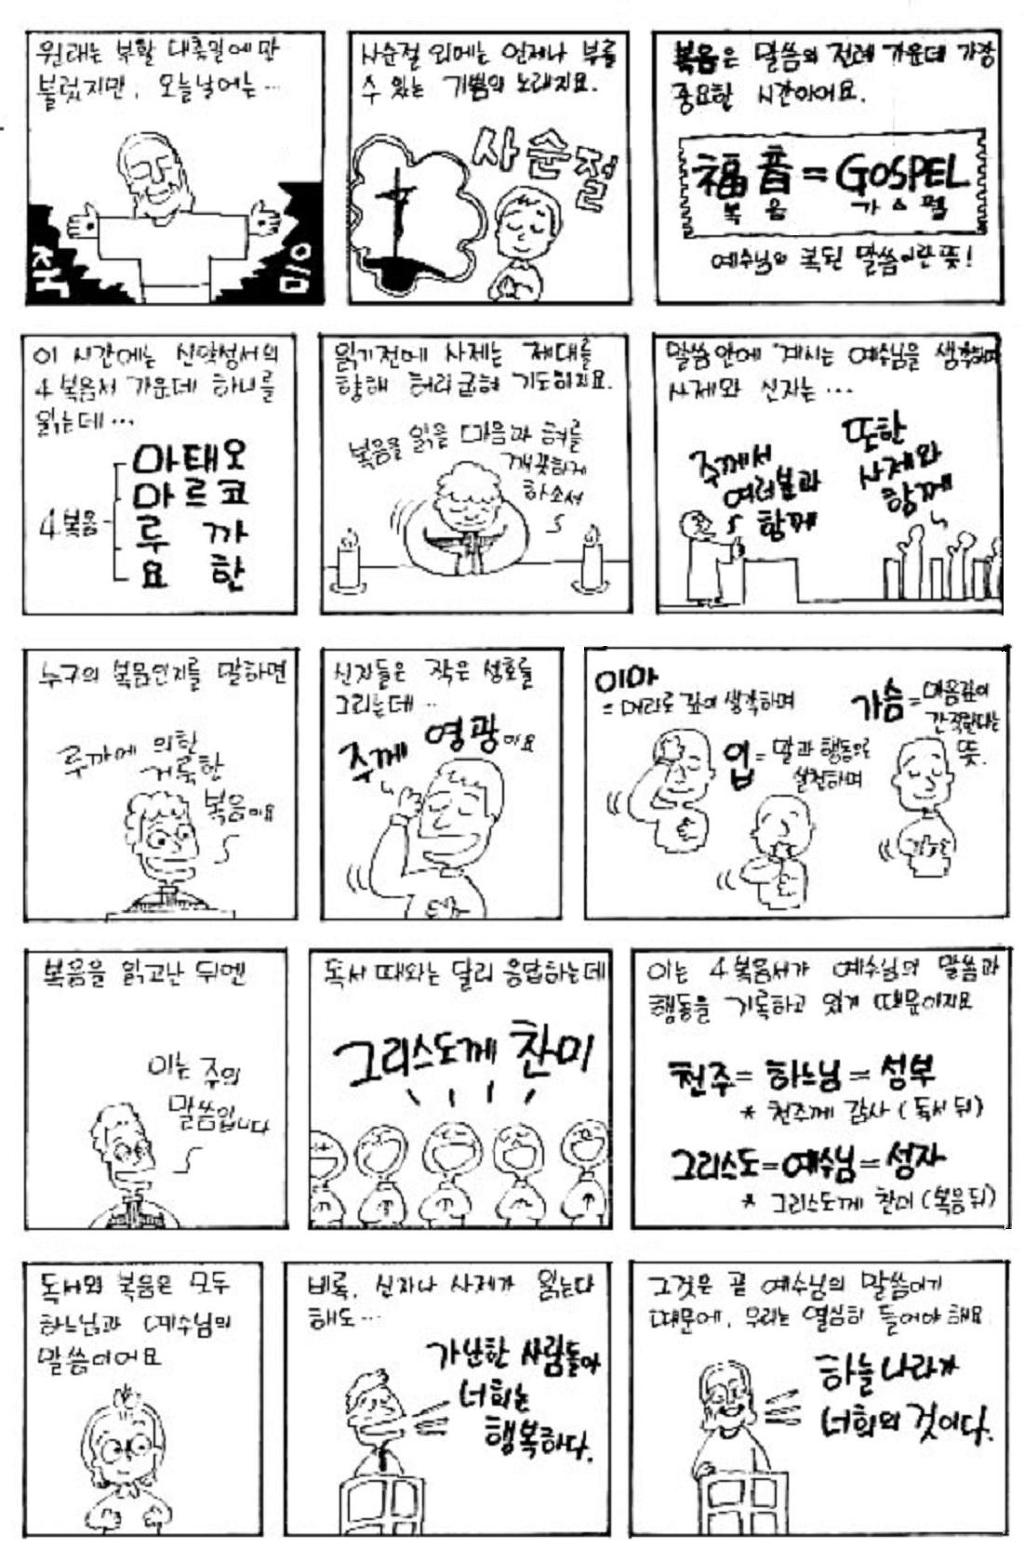 원래는 부활 대축일에만
불렀지만, 오늘날에는…
죽
음
사순절 외에는 언제나 부를
수 있는 기쁨의 노래지요.
사순절
복음은 말씀의 전례 가운데 가장
중요한 시간이어요.
福音=GOSPEL
복음 가스펠
예수님의 복된 말씀이란 뜻!
이 시간에는 신약성서의
4 복음서 가운데 하나를
읽는데…
4복음
마태오
마르코
루 까
요 한
읽기전에 사제는 제대를
향해 허리 굽혀 기도하지요.
복음을 읽을 마음과 혀를
깨끗하게
하소서
말씀 안에 계시는 예수님을 생각하며
사제와 신자는…
주께서
여러분과
함께
또한
사제와
함께
누구의 복음인지를 말하면
루까에 의한
거룩한
복음이요
신자들은 작은 성호를
그리는데…
주께 영광이요
이마
=머리로 깊이 생각하며
입=말과 행동으로
실천하며
가슴=마음깊이
간직한다는
뜻.
복음을 읽고난 뒤엔
이는 주의
말씀입니다
독서 때와는 달리 응답하는데
그리스도께 찬미
이는 4복음서가 예수님의 말씀과
행동을 기록하고 있기 때문이지요
천주=하느님=성부
* 천주께 감사 (독서 뒤)
그리스도=예수님=성자
* 그리스도께 찬미 (복음 뒤)
독서와 복음은 모두
하느님과 예수님의
말씀이어요
비록, 신자나 사제가 읽는다
해도…
가난한 사람들아
너희는
행복하다.
그것은 곧 예수님의 말씀이기
때문에, 우리는 열심히 들어야 해요
하늘나라가
너희의 것이다.